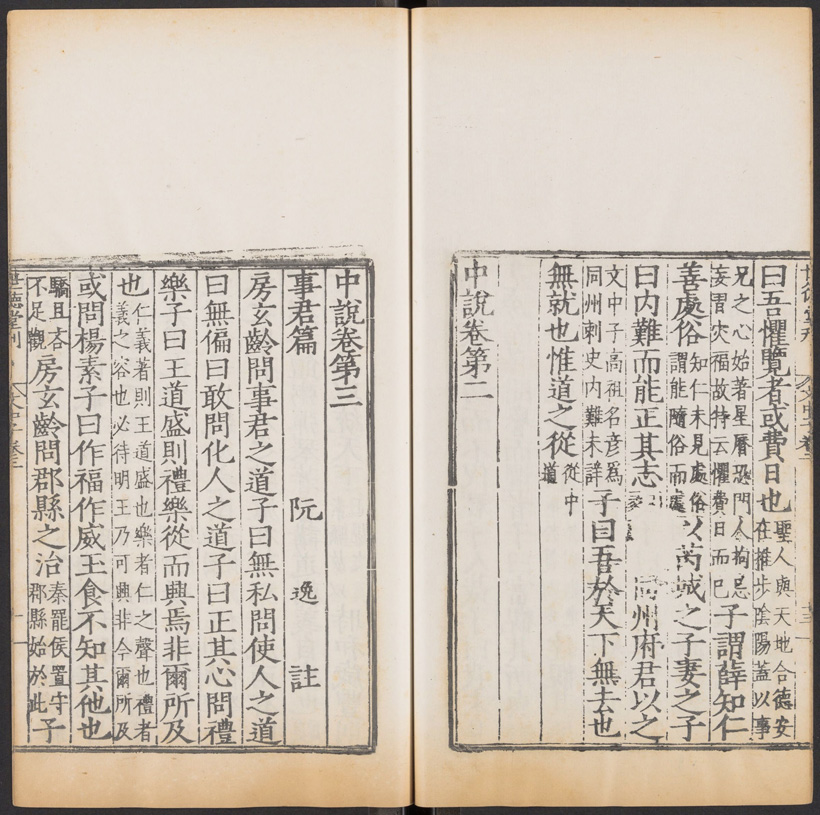 曰吾懼覽者或費日也聖人與天地合德安在推步陰陽蓋以事
兄之心始著星曆恐門人拘忌妄謂灾福故特云懼費日而已子謂薛知仁
善處俗知仁未見處俗謂能隨俗而處以芮城之子妻之子
曰內難而能正其志州府君以之
文中子高祖名彥爲同州刺史內難未詳子曰吾於天下無去也
無就也惟道之從從中道
中說卷第二
中說卷第三
事君篇 阮 逸 註
房玄齡問事君之道子曰無私問使人之道
曰無偏曰敢問化人之道子曰正其心問禮
樂子曰王道盛則禮樂從而興焉非爾所及
也仁義著則王道盛也樂者仁之聲也禮者義之容也必待明王乃可興非今爾所及
或問楊素子曰作福作威玉食不知其他也
驕且吝不足觀房玄齡問郡縣之治秦罷侯置守郡縣始於此子
世德堂刊